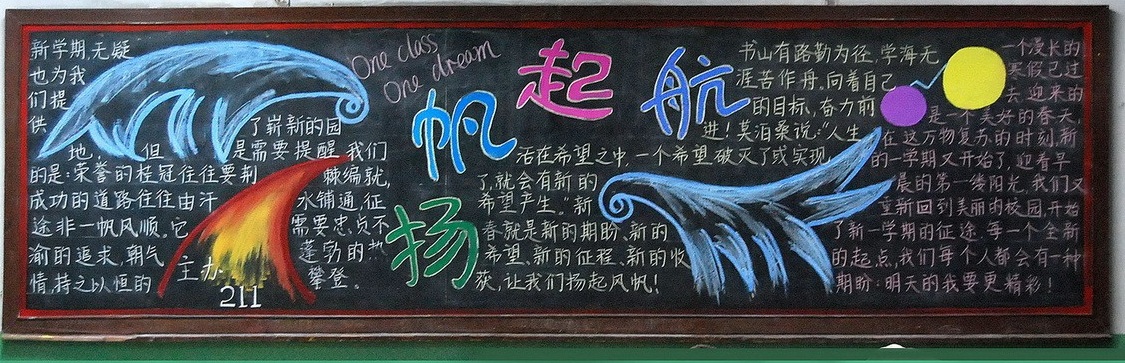 新学期,无疑
也为我
们提
供 了崭新的园
地,但 是需要提醒我们
的是:荣誉的桂冠往往要荆 棘编就,
成功的道路往往由汗 水铺通,征
途非一帆风顺。它 需要忠贞不
渝的追求,朝气 蓬勃的热
情,持之以恒的 攀登。
主办
211
One class
One dream
扬帆起航
书山有路勤为径,学海无
涯苦作舟。向着自己
的目标,奋力前
进!莫泊桑说:“人生
活在希望之中,一个希望破灭了或实现
了,就会有新的
希望产生。”新
春就是新的期盼、新的
希望、新的征程、新的收
获,让我们扬起风帆!
一个漫长的
寒假已过
去,迎来的
是一个美好的春天,
在这万物复苏的时刻,新
的一学期又开始了,迎着早
晨的第一缕阳光,我们又
重新回到美丽的校园,开始
了新一学期的征途,每一个全新
的起点,我们每个人都会有一种
期盼:明天的我要更精彩!